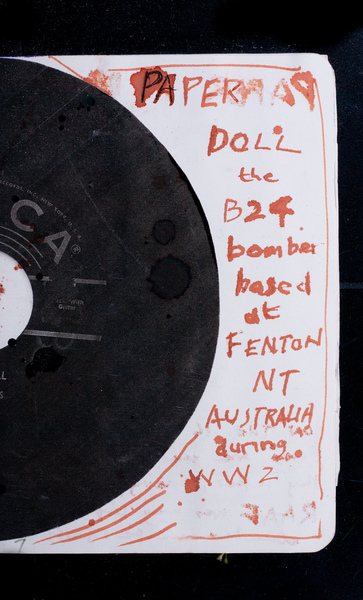 PAPER
DOLL
the
B24
bomber
based
at
FENTON
NT
AUSTRALIA
during
WW2
CA®